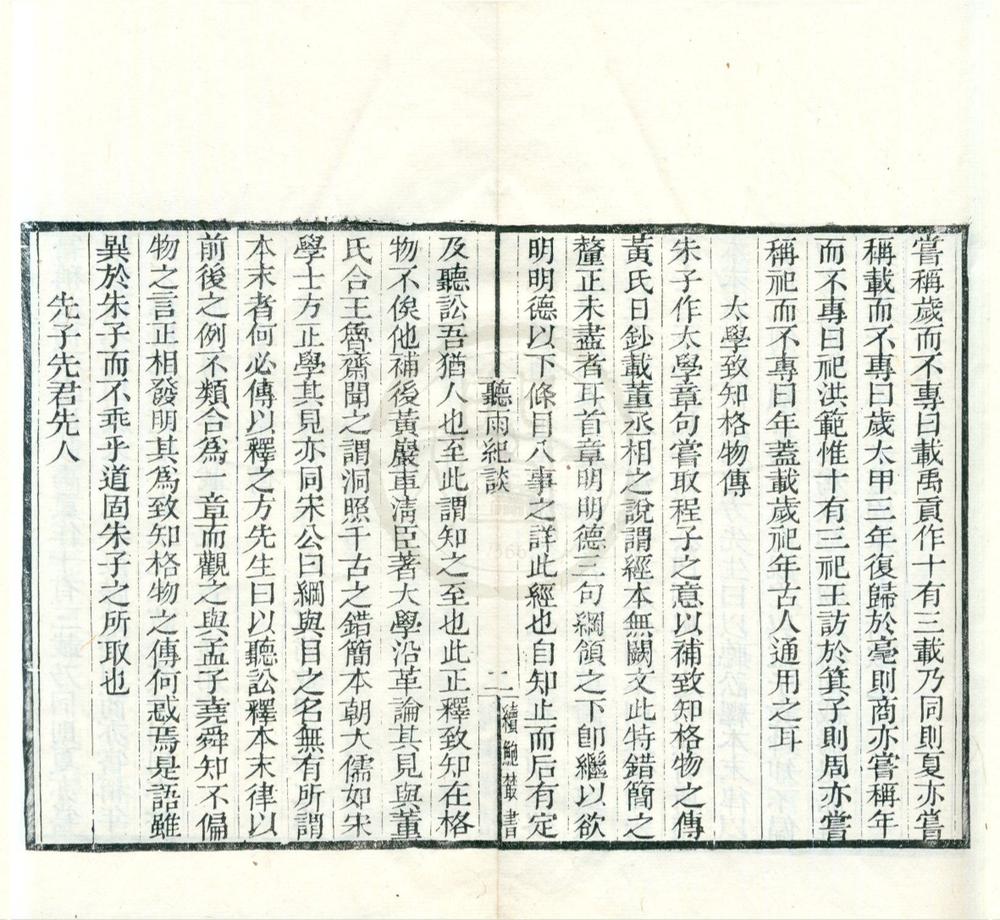 嘗稱歲而不專曰載禹貢作十有三載乃同則夏亦嘗
稱載而不專曰歲太甲三年復歸於亳則商亦嘗稱年
而不專曰祀洪範惟十有三祀王訪於箕子則周亦嘗
稱祀而不專曰年蓋載歲祀年古人通用之耳
太學致知格物傳
朱子作太學章句嘗取程子之意以補致知格物之傳
黃氏日鈔載董丞相之說謂經本無闕文此特錯簡之
釐正未盡者耳首章明明德三句綱領之下卽繼以欲
明明德以下條目八事之詳此經也自知止而后有定
聽雨紀談
二
續鮑叢書
及聽訟吾猶人也至此謂知之至也此正釋致知在格
物不俟他補後黃巖車清臣著大學沿革論其見與董
氏合王魯齋聞之謂洞照千古之錯簡本朝大儒如宋
學士方正學其見亦同宋公曰綱與目之名無有所謂
本末者何必傳以釋之方先生曰以聽訟釋本末律以
前後之例不類合爲一章而觀之與孟子堯舜知不偏
物之言正相發明其爲致知格物之傳何惑焉是語雖
異於朱子而不乖乎道固朱子之所取也
先子先君先人